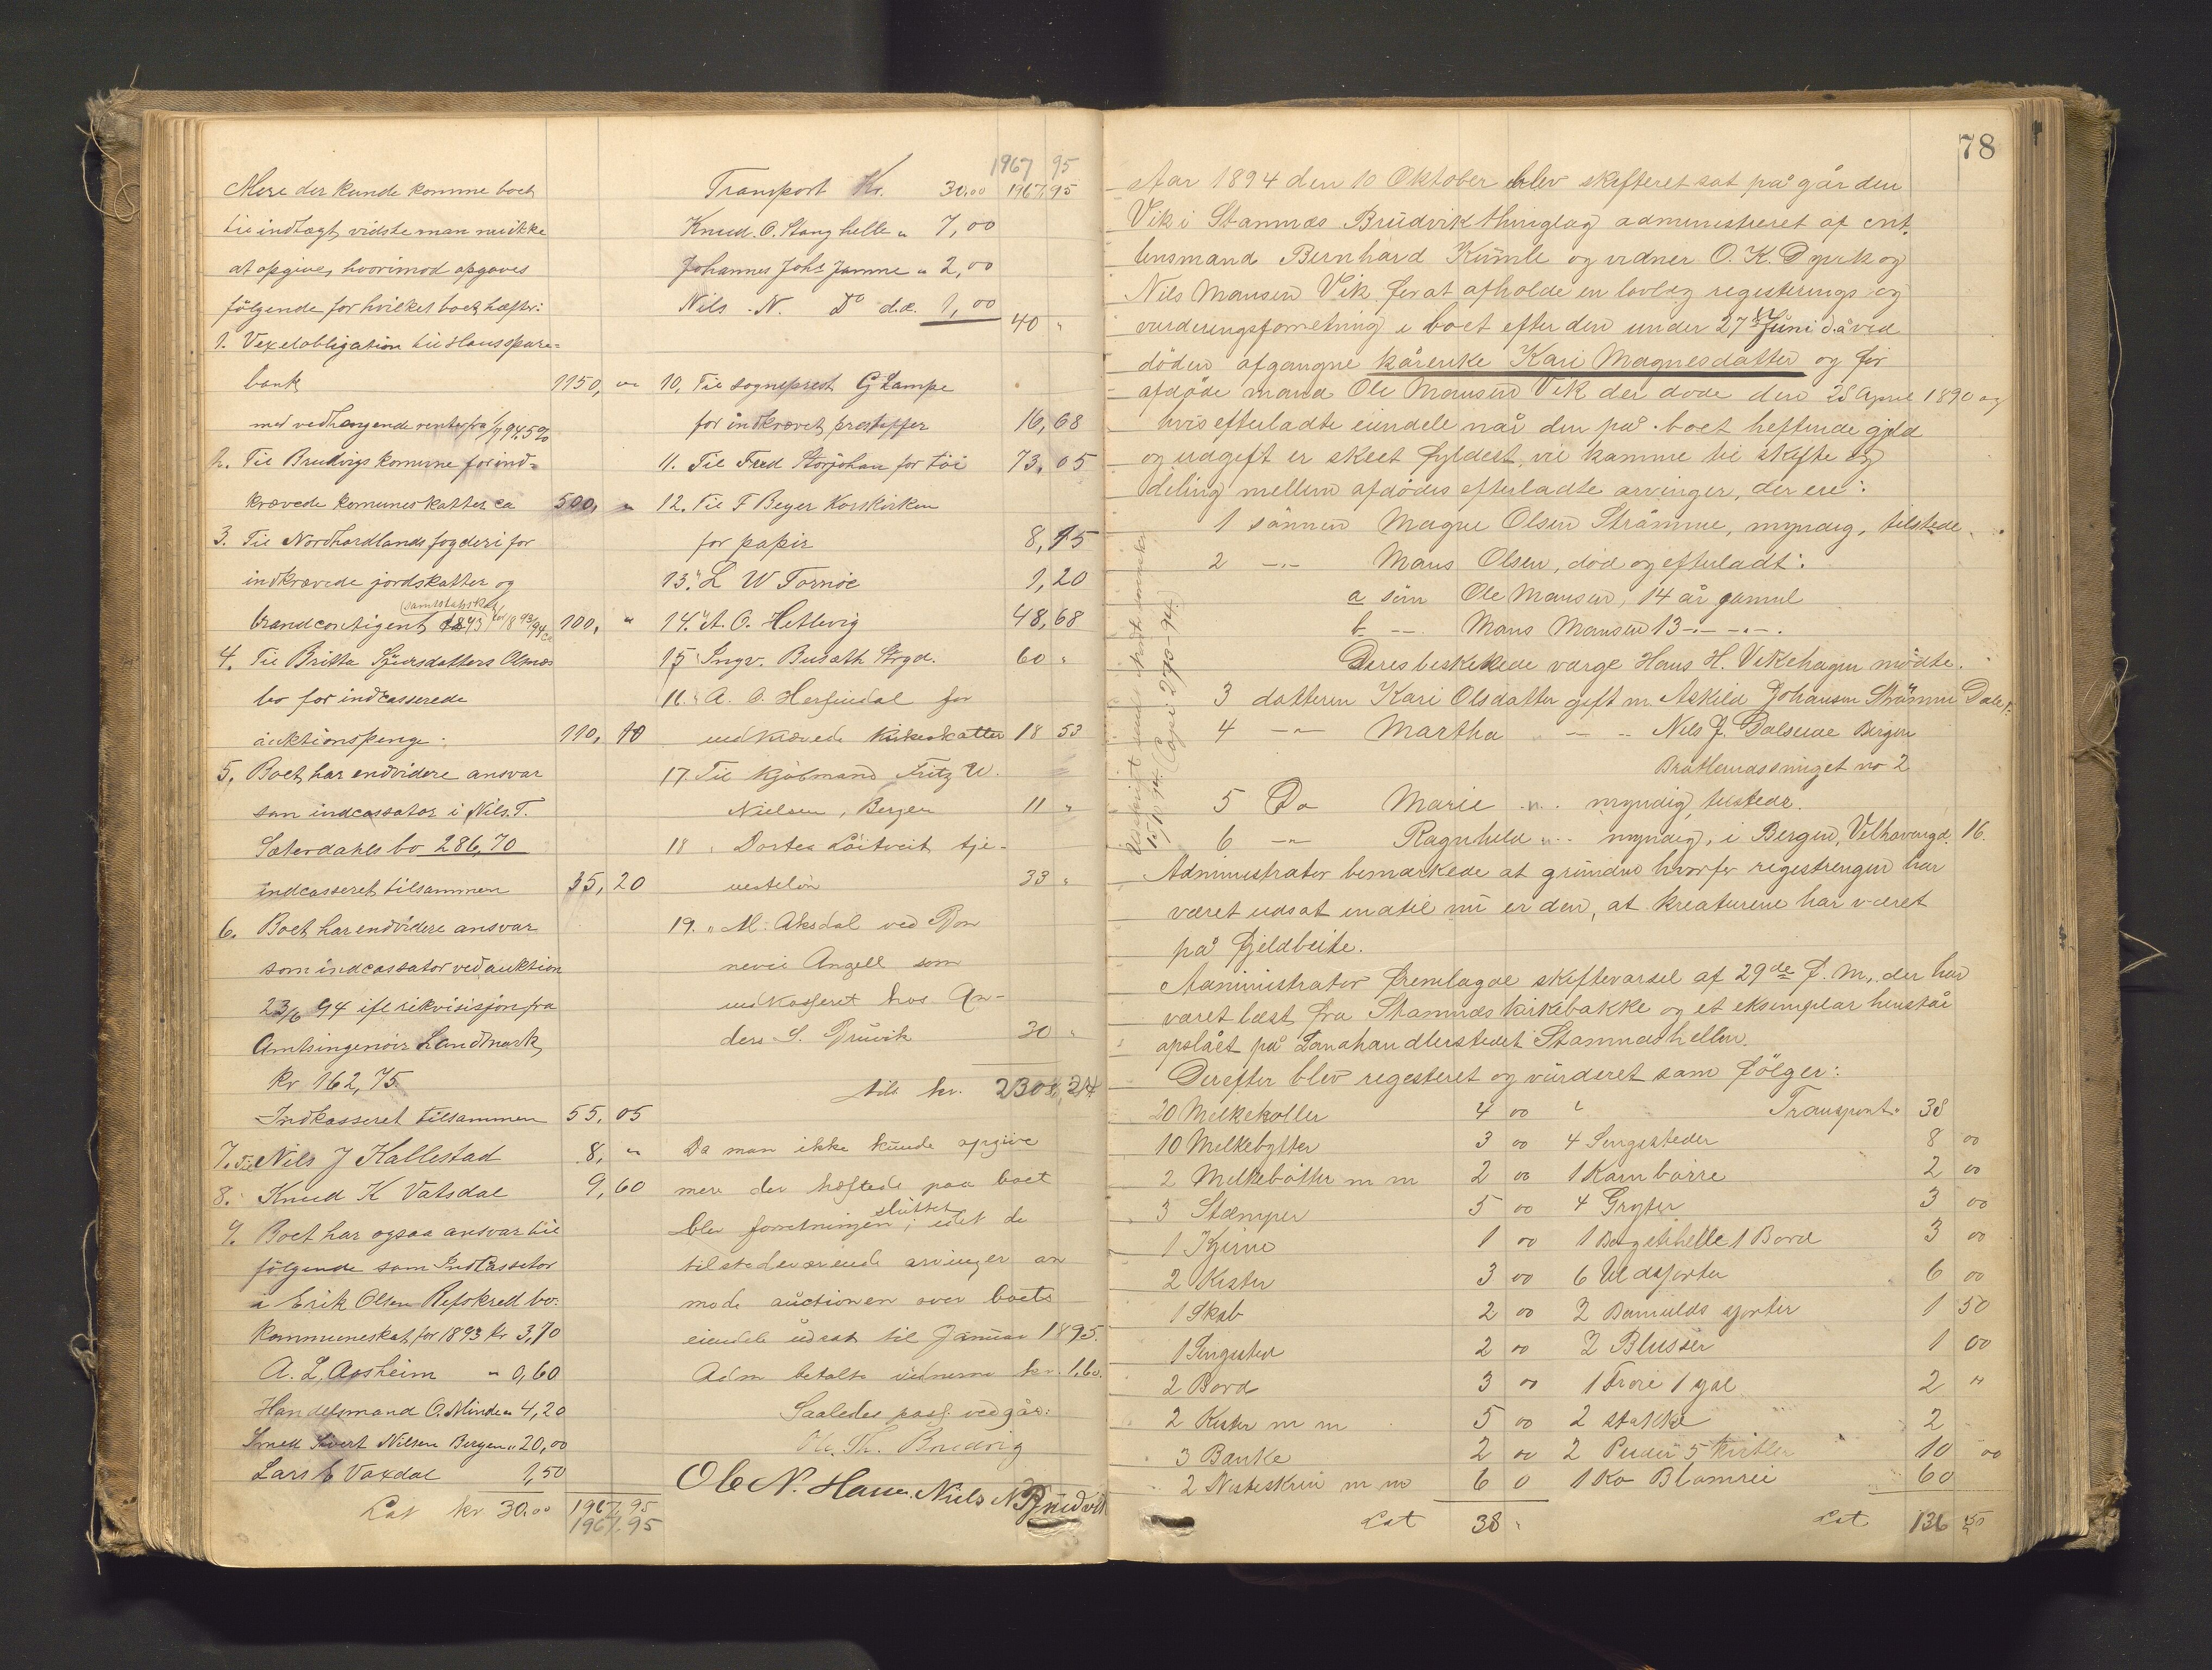 Mere der kunde komme boet
til indtægt, vidste man nu ikke
at opgive, hvorimod opgaves
følgende for hvilket boet hæfter:
1. Vexelobligation til Haus spare=
bank 1150, "
med vedhængende renter fra 1/7 94, 5%
2. Til Brudvigs komune for ind=
krævede komuneskatter ca 500, "
3. Til Nordhordlands fogderi for
indkrævede jordskatter og
(samtstabsskat)
brandcontigent for 1893/94 ca 100, "
4. Til Britta Sjursdatters Olsnes
bo for indcasserede
auktionspenge. 110, 10
5. Boet har endvidere ansvar
som indcassator i Nils. T.
Saterdahls bo 286,70
indcasseret tilsammen 35, 20
6. Boet har endvidere ansvar
som indcassator ved auktion
23/6 94 ifl rikvisisjon fra
Amtsingeniør Landmark
kr 162,75.
Indkasseret tilsammen 55, 05
7. Til Nils J Kallestad 8, "
8. " Knud K Vatsdal 9, 60
9. Boet har ogsaa ansvar til
følgende som Indkassator
i Erik Olsen bo.
Kommuneskat for 1893 kr 3,70
A. L. Aasheim " 0,60
Handelsmand O. Minde " 4,20
Smed Sivert Nilsen Bergen " 20,00
Lars Vaxdal 1,50
Lat kr 30.00 1967,95
1967,95
1967 95
Transport Kr. 30.00 1967,95
Knud. O. Stanghelle " 7,00
Johannes Johs Jamne " 2,00
Nils . N. Do do. 1,00
40 "
10. Til sogneprest G Lampe
for indkrævet prestoffer 16, 68
11. Til Fred Storjohan for töi 73, 05
12. Til F Beyer Korskirken
for papir 8, 15
13. " L W Tornöe 1, 20
14. " A. O. Hetlevig 48, 68
15 " Ingv. Budath Strgd. 60 "
16. " A. O. Herfindal for
indkrævede kirkeskatter 18 53
17. Til kjöbmand Fritz W.
Nielsen, Bergen 11 "
18 " Dortea Löitveit tje-
nestelön 33 "
19. " M. Aksdal ved Pro
Angell som
indkasseret hos An-
ders S. Bruvik 30 "
tils. kr. 2308,24
Da man ikke kunde opgive
mere der hæftede paa boet
sluttet
blev forretningen, idet de
tilstedeværende arvinger an
mode auctionen over boets
eiendele udsat til Januar 1895.
Adm betalte vidnerne kr. 1,60.
Saaledes pass. vedgår:
Ole. Th. Brudvig
Ole N. Haus. Niels N Brudvik
78
Aar 1894 den 10 Oktober blev skifteret sat på gården
Vik i Stamnæs Brudvik thinglag administreret af cnt.
lensmand Bernhard Kümle og vidner O. K. Dyvik og
Nils Monsen Vik for at afholde en lovlig registerings og
vurderingsforretning i boet efter den under 27de Juni d.å ved
döden afgangne kårenke Kari Magnesdatter og för
afdöde mand Ole Monsen Vik der döde den 28 April 1890 og
hvis efterladte eiendele når den på boet heftende gjeld
og udgift er skeet fyldest, vil komme til skifte og
deling mellem afdödes efterladte arvinger, der ere:
1 sönnen Magne Olsen Strömme, myndig, tilstede.
2 -"- Mons Olsen, död og efterladt:
a sön Ole Monsen, 14 år gamel
b -- Mons Monsen 13 -"- -"-.
Deres beskikkede værge Hans H. Vikehagen mödte.
3 datteren Kari Olsdatter gift m. Askild Johansen Strömme Dale
4 -"- Martha - - " Nils J. Dalseide Bergen
Bratlandssmuget no 2
5 Do Marie " myndig, tilstede.
6 -"- Ragnhild " myndig, i Bergen, Velhavengd. 16.
Administrator bemærkede at grunden hvorfor registreringen har
været udsat indtil nu er den, at kreaturene har været
på fjeldbeite.
Administrator fremlagde skiftevarsel af 29de f. M., der har
været læst fra Stamnæs kirkebakke og et eksemplar henstår
opslået på Lanahandlerstedet Stamnæshellen.
Derefter blev registeret og vurderet som fölger:
20 Melkekoller 4 00 " Transport. 38
10 Melkebytter 3 00 4 Sengesteder 8 00
2 Melkebötter m m 2 00 1 Karnbörre 2 00
3 Stamper 5 00 4 Gryter 3 00
1 Kjerne 1 00 1 Bagstehelle 1 Bord 3 00
2 Kister 3 00 6 Uldsjorter 6 00
1 Skab 2 00 2 Bomulds sjorter 1 50
1 Sengested 2 00 2 Blusser 1 00
2 Bord 3 00 1 Tröie 1 2 "
2 Kister m m 5 00 2 stakke 2
3 Banke 2 00 2 Puder 5 Kvitler 10 00
2 Nisteskrin m m 6 0 1 Ko Blomrei 60
Lat 38 " Lat 136 50